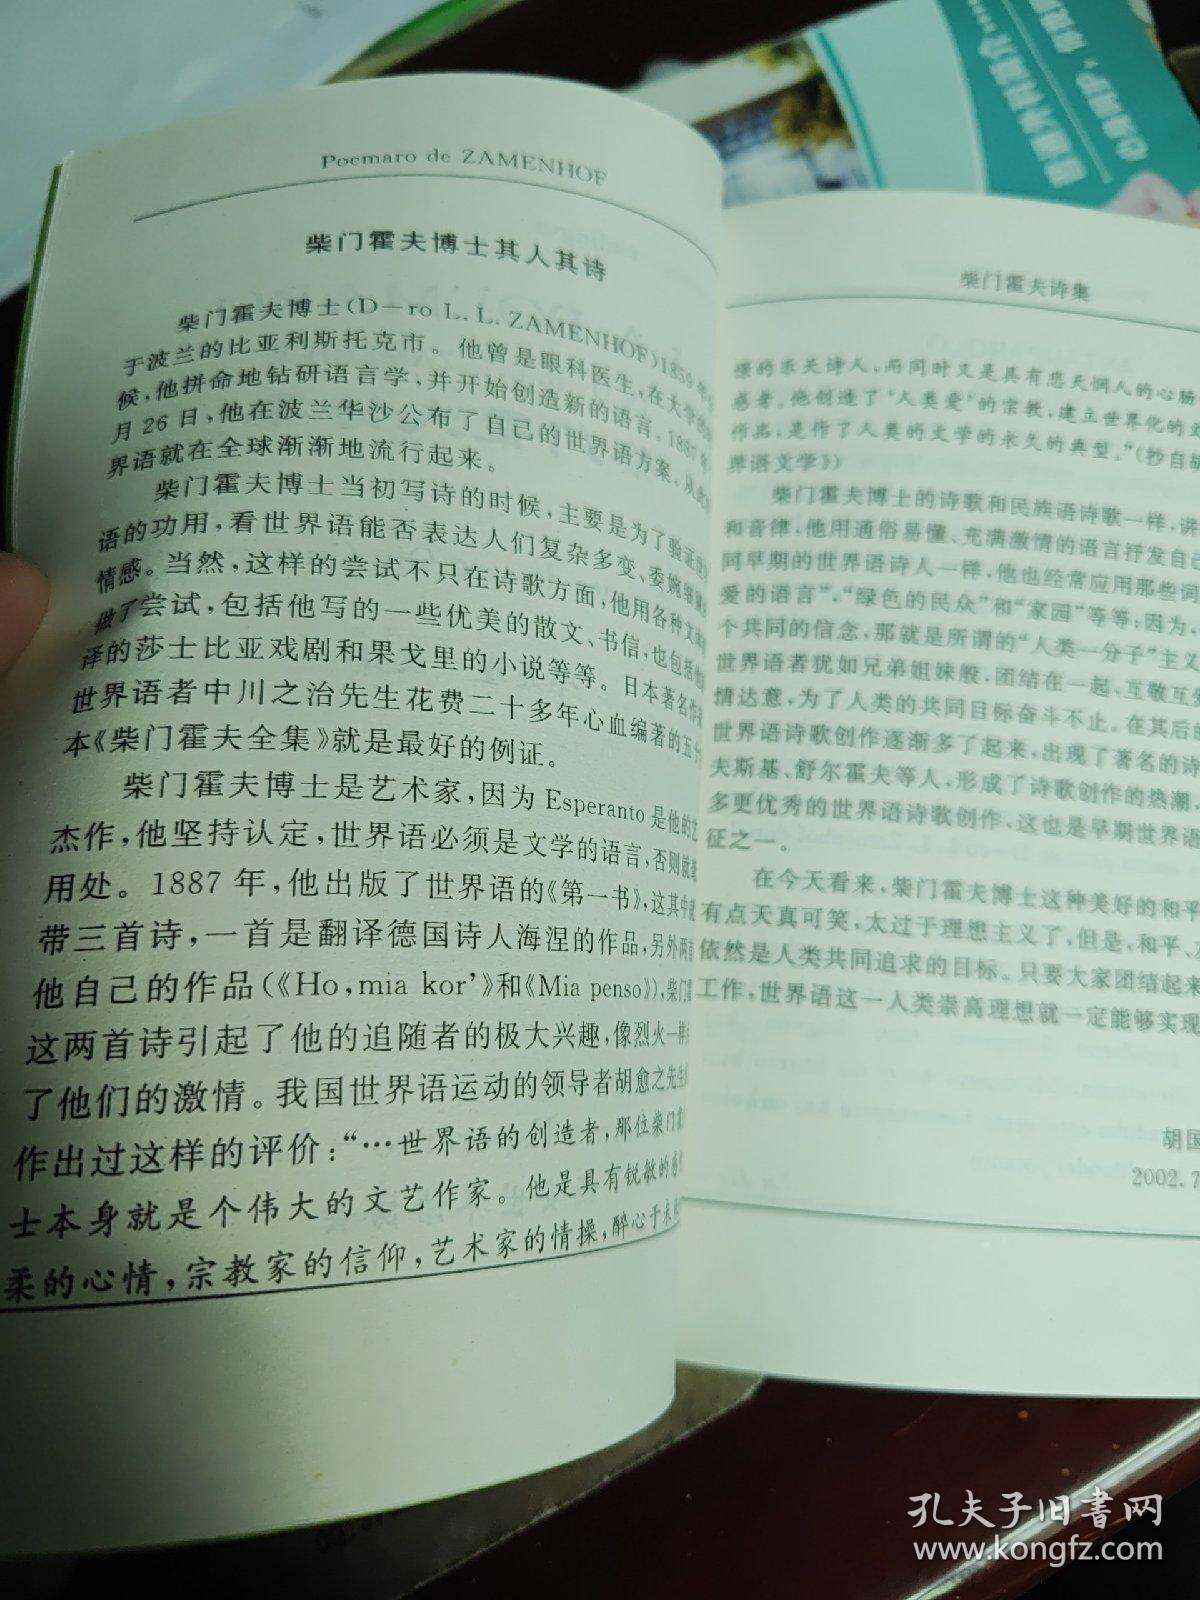 Poemaro de ZAMENHOF
柴门霍夫博士其人其诗
柴门霍夫博士(D-ro L. L. ZAMENHOF)1859
于波兰的比亚利斯托克市。他曾是眼科医生,在大学的
候,他拼命地钻研语言学,并开始创造新的语言。1887
月26日,他在波兰华沙公布了自己的世界语方案。从此
界语就在全球渐渐地流行起来。
柴门霍夫博士当初写诗的时候,主要是为了验证
语的功用,看世界语能否表达人们复杂多变、委婉
情感。当然,这样的尝试不只在诗歌方面,他用各种文
做了尝试,包括他写的一些优美的散文、书信,也包括他
译的莎士比亚戏剧和果戈里的小说等等。日本著名
世界语者中川之治先生花费二十多年心血编著的五十
本《柴门霍夫全集》就是最好的例证。
柴门霍夫博士是艺术家,因为 Esperanto 是他的艺
杰作,他坚持认定,世界语必须是文学的语言,否则就
用处。1887 年,他出版了世界语的《第一书》,这其中就
带三首诗,一首是翻译德国诗人海涅的作品,另外两首
他自己的作品(《Ho, mia kor'》和《Mia penso》),柴门霍
这两首诗引起了他的追随者的极大兴趣,像烈火一样
了他们的激情。我国世界语运动的领导者胡愈之先生
作出过这样的评价:“…世界语的创造者,那位柴门霍
士本身就是个伟大的文艺作家。他是具有锐敏的感
柔的心情,宗教家的信仰,艺术家的情操,醉心于未
柴门霍夫诗集
憬的乐天诗人,而同时又是具有悲天悯人的心肠
感者。他创造了‘人类爱’的宗教,建立世界化的文
作品,是作了人类的文学的永久的典型。”(抄自胡
界语文学》)
柴门霍夫博士的诗歌和民族语诗歌一样,讲
和音律,他用通俗易懂、充满激情的语言抒发自己
同早期的世界语诗人一样,他也经常应用那些词
爱的语言”,“绿色的民众”和“家园”等等;因为,
个共同的信念,那就是所谓的“人类一分子”主义
世界语者犹如兄弟姐妹般,团结在一起,互敬互
情达意,为了人类的共同目标奋斗不止。在其后的
世界语诗歌创作逐渐多了起来,出现了著名的诗
夫斯基、舒尔霍夫等人,形成了诗歌创作的热潮,
多更优秀的世界语诗歌创作,这也是早期世界语
征之一。
在今天看来,柴门霍夫博士这种美好的和平
有点天真可笑,太过于理想主义了,但是,和平、
依然是人类共同追求的目标。只要大家团结起来
工作,世界语这一人类崇高理想就一定能够实现
胡国
2002.7
孔夫子旧书网
www.kongfz.com